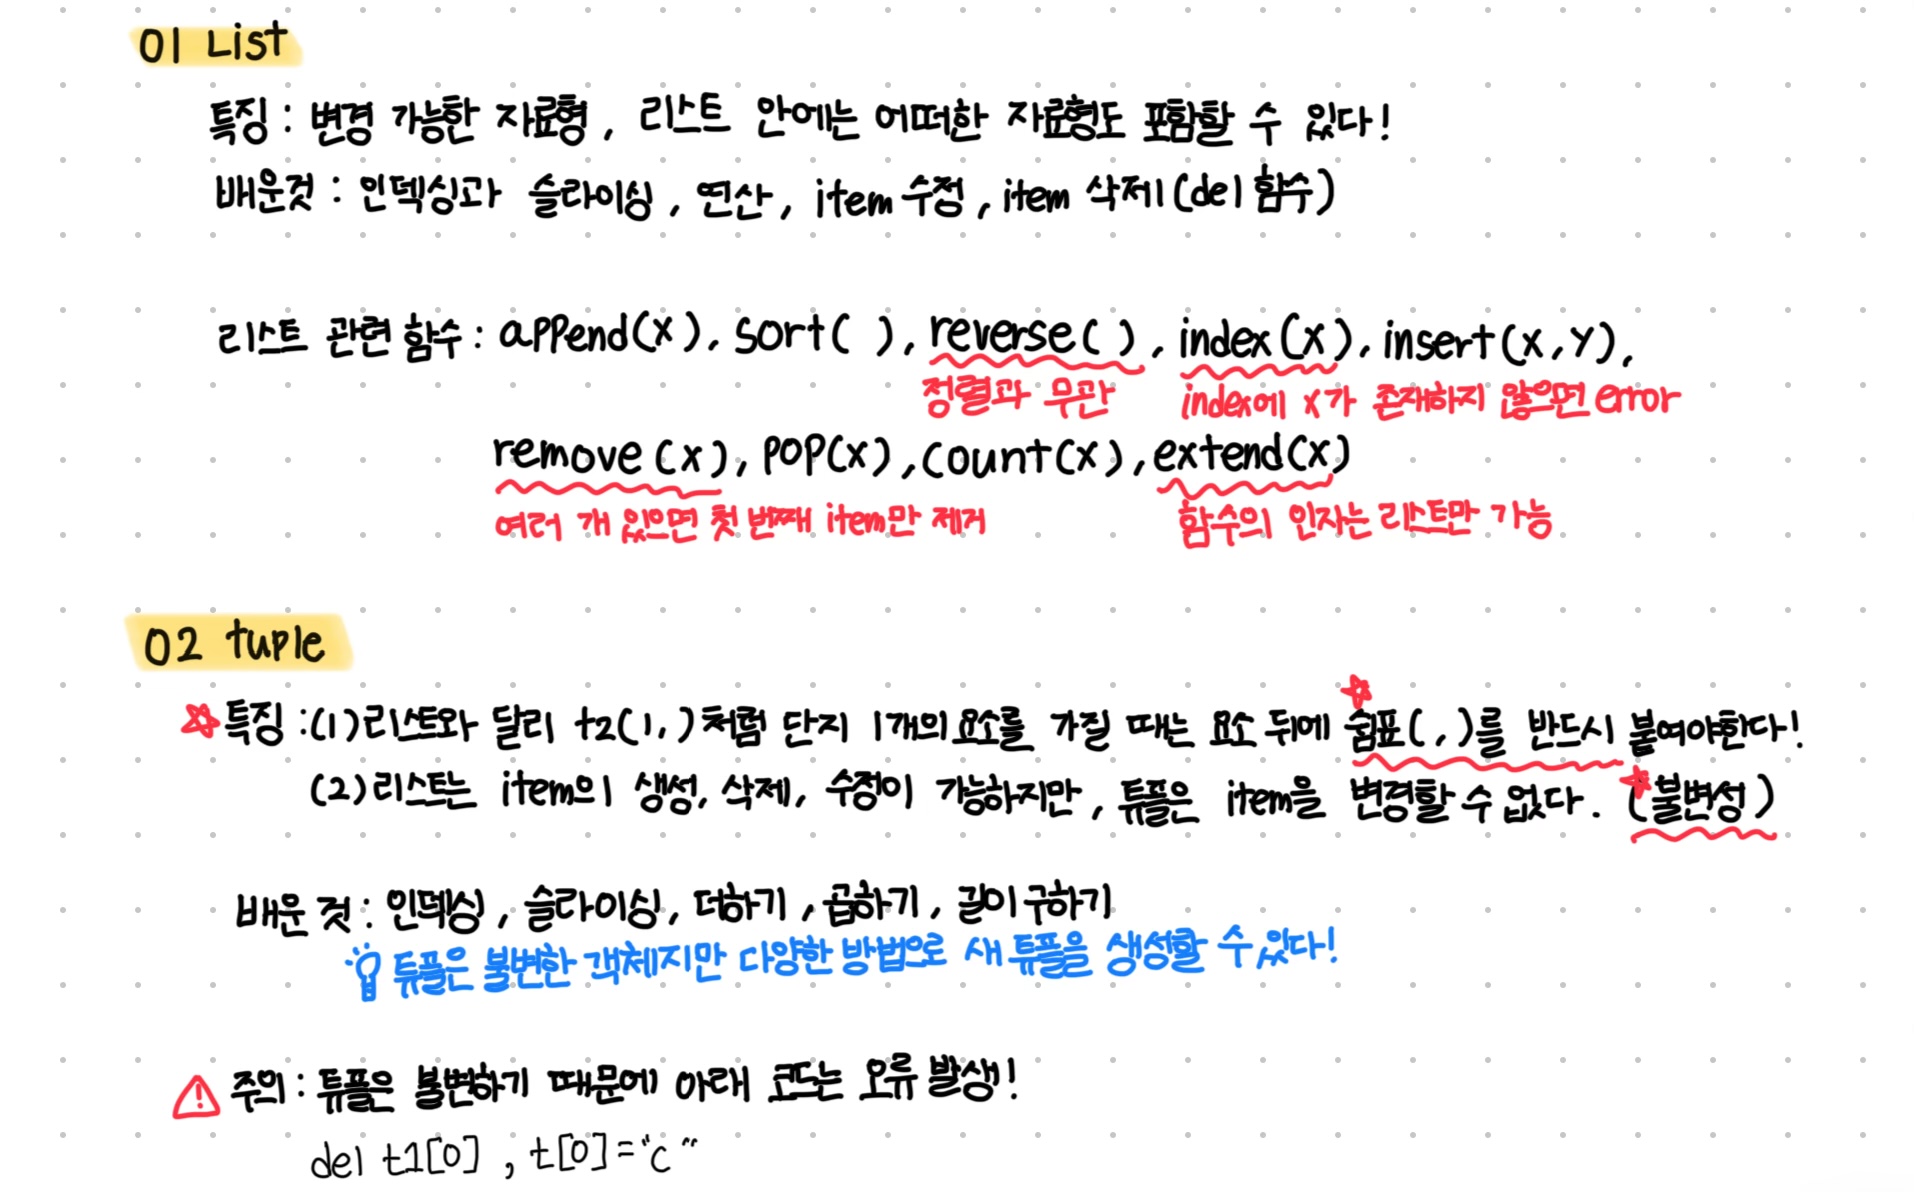 01 List
특징 : 변경 가능한 자료형, 리스트 안에는 어떠한 자료형도 포함할 수 있다!
배운것 : 인덱싱과 슬라이싱, 연산, item 수정, item 삭제(del 함수)
리스트 관련 함수 : append(x), sort( ), reverse( ), index(x), insert(x,y),
정렬과 무관
index에 x가 존재하지 않으면 error
remove(x), pop(x), count(x), extend(x)
여러 개 있으면 첫 번째 item만 제거
함수의 인자는 리스트만 가능
02 tuple
특징 : (1) 리스트와 달리 t2(1,)처럼 단지 1개의 요소를 가질 때는 요소 뒤에 쉼표(,)를 반드시 붙여야한다!
(2) 리스트는 item의 생성, 삭제, 수정이 가능하지만, 튜플은 item을 변경할 수 없다. (불변성)
배운 것 : 인덱싱, 슬라이싱, 더하기, 곱하기, 길이구하기
튜플은 불변한 객체지만 다양한 방법으로 새 튜플을 생성할 수 있다!
주의 : 튜플은 불변하기 때문에 아래 코드는 오류 발생!
del t1[0] , t[0]="c"